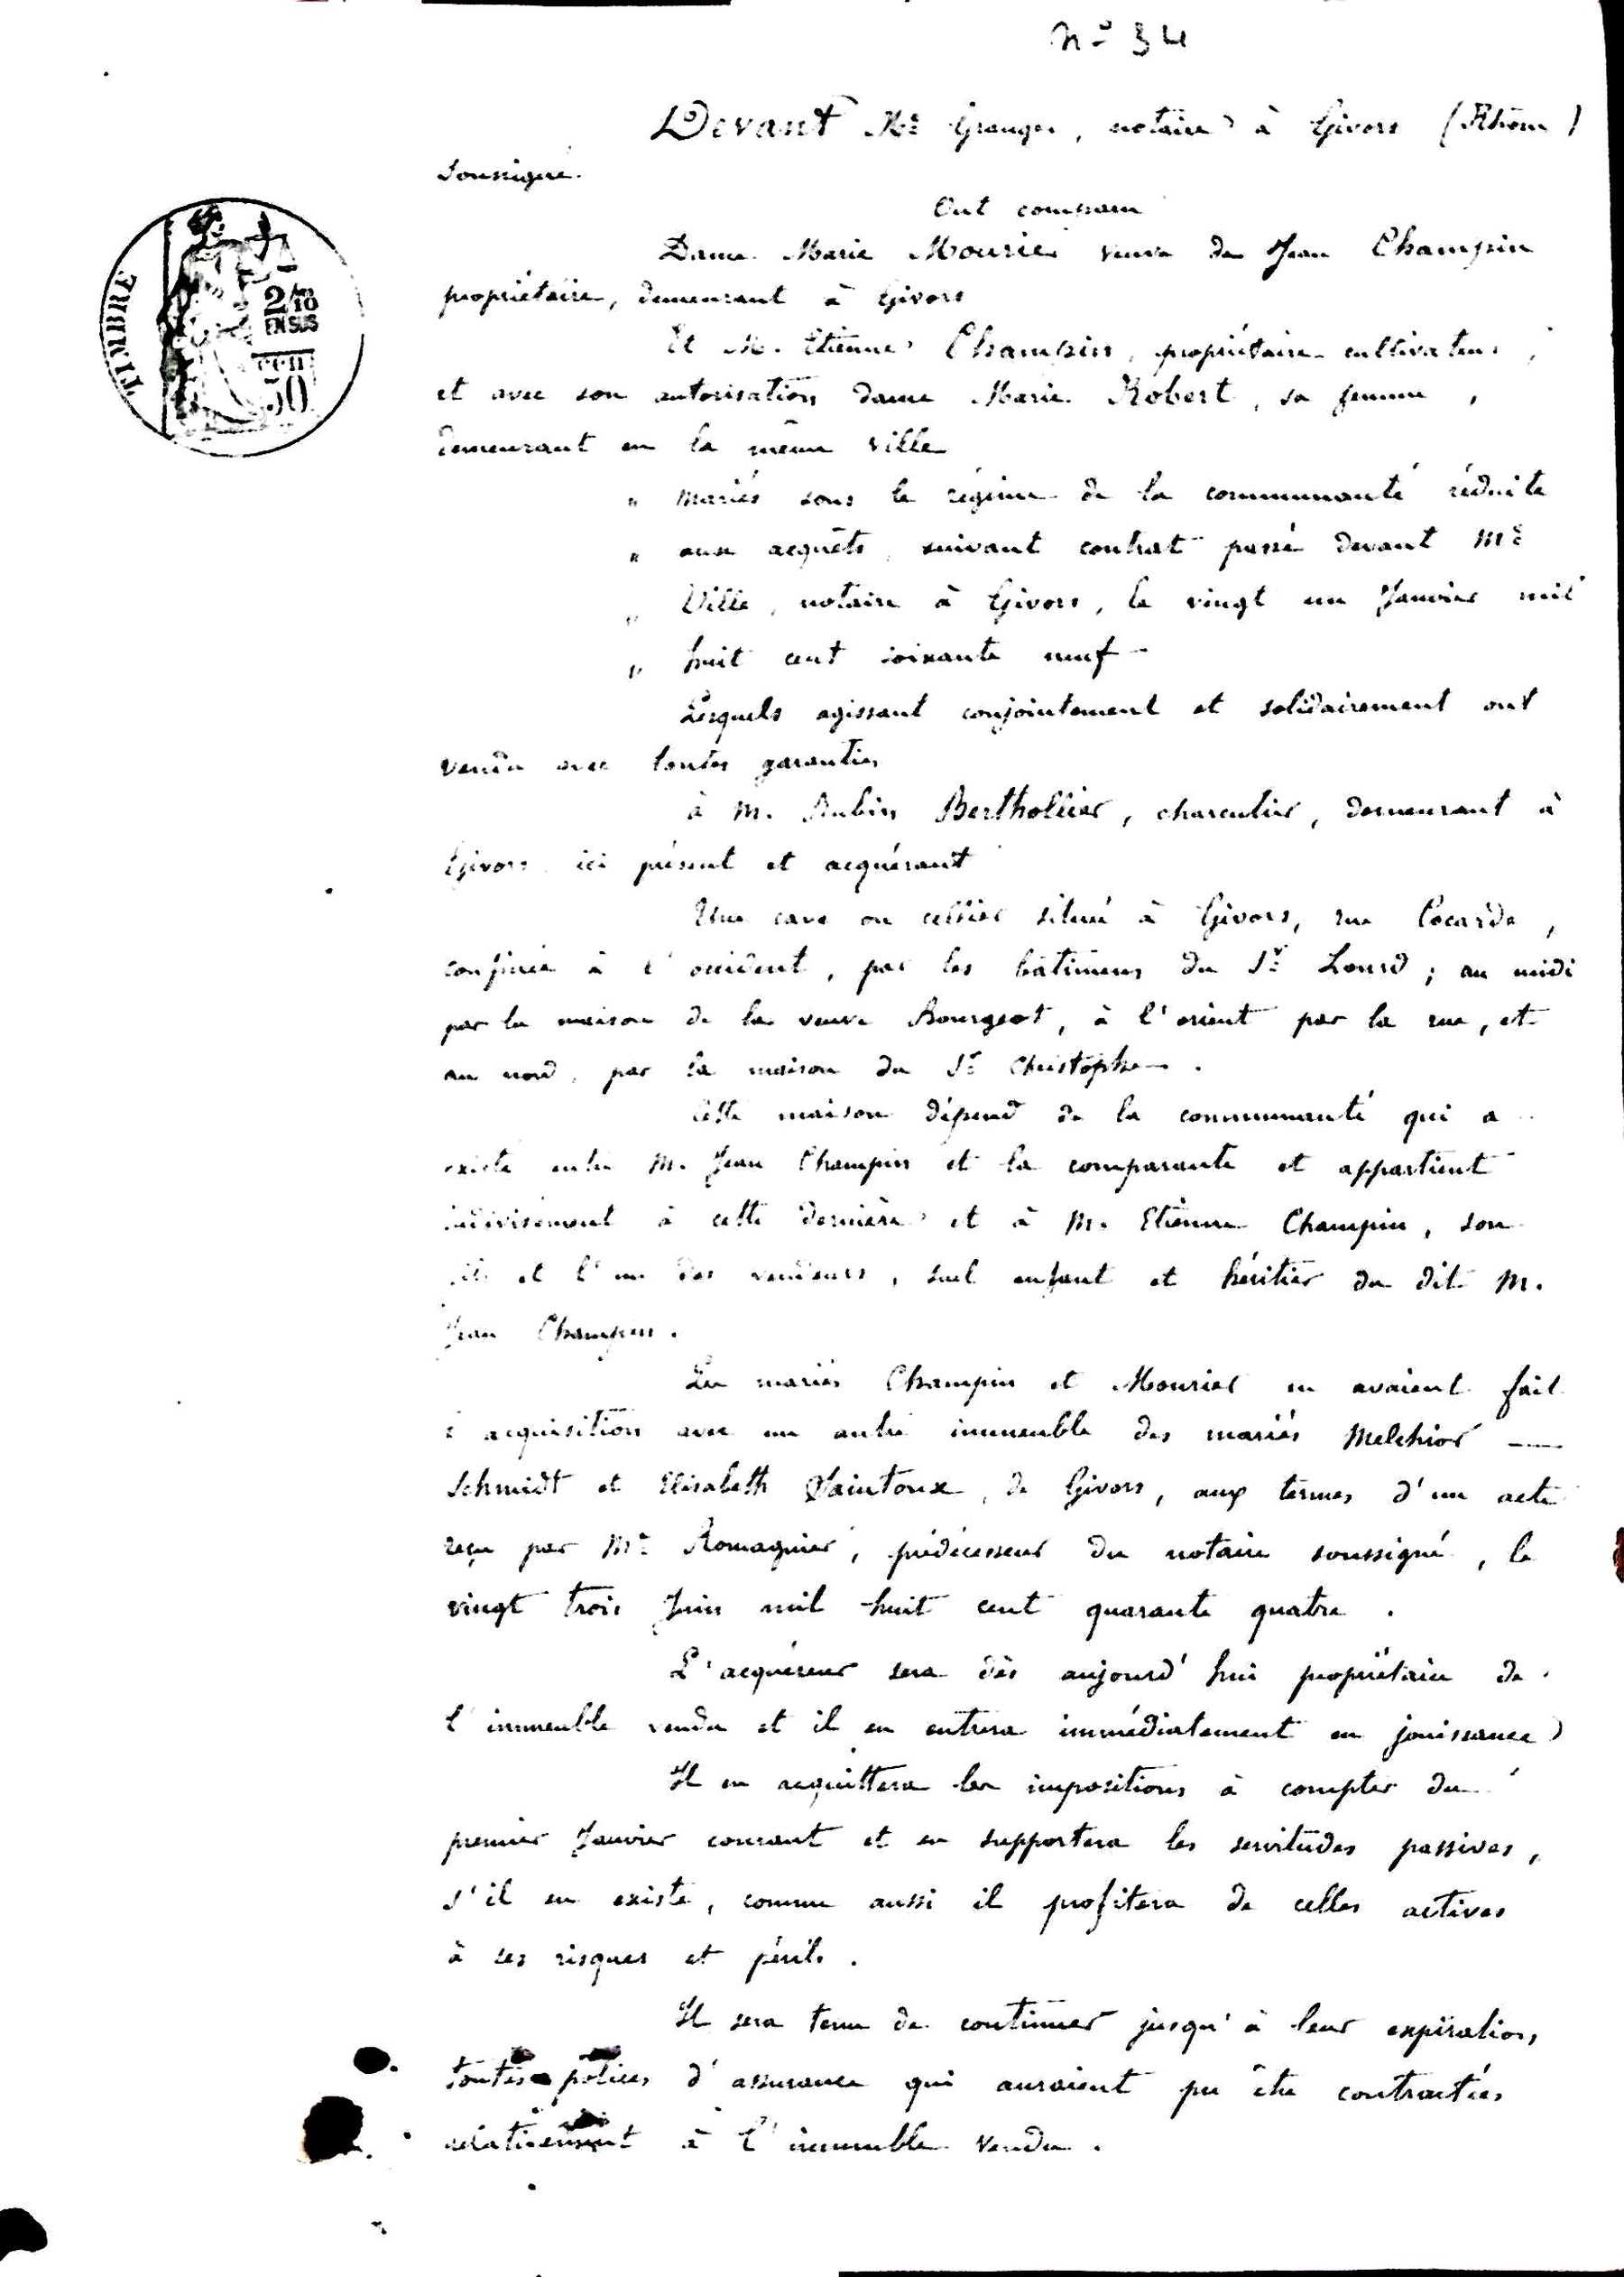 n° 34
Devant Me Granger, notaire à Givors (Rhône)
soussigné.
Ont comparu
Dame Marie Mourier veuve de Jean Champin
propriétaire, demeurant à Givors
Et M. Etienne Champin, propriétaire cultivateur,
et avec son autorisation dame Marie Robert, sa femme,
demeurant en la même ville
" mariés sous le régime de la communauté réduite
" aux acquêts, suivant contrat passé devant Me
" Ville, notaire à Givors, le vingt un Janvier mil
" huit cent soixante neuf
Lesquels agissant conjointement et solidairement ont
vendu avec toutes garanties
à M. Aubin Berthollier, charcutier, demeurant à
Givors ici présent et acquérant
Une cave ou cellier situé à Givors, rue Cocarde,
confinée à l'occident, par les bâtimens du Sr Lourd; au midi
par la maison de la veuve Bourgeot, à l'orient par la rue, et
au nord, par la maison du Sr Christophe.
Cette maison dépend de la communauté qui a
existé entre M. Jean Champin et la comparante et appartient
indivisément à cette dernière et à M. Etienne Champin, son
fils et l'un des vendeurs, seul enfant et héritier du dit M.
Jean Champin.
Les mariés Champin et Mourier en avaient fait
l'acquisition avec un autre immeuble des mariés Melchior
Schmidt et Elisabeth Jaintoux, de Givors, aux termes d'un acte
reçu par Me Romagnier, prédécesseur du notaire soussigné, le
vingt trois Juin mil huit cent quarante quatre.
L'acquéreur sera dès aujourd'hui propriétaire de
l'immeuble vendu et il en entrera immédiatement en jouissance
Il en acquittera les impositions à compter du
premier Janvier courant et en supportera les servitudes passives,
s'il en existe, comme aussi il profitera de celles actives
à ses risques et périls.
Il sera tenu de continuer jusqu'à leur expiration,
toutes polices d'assurance qui auraient pu être contractées
relativement à l'immeuble vendu.
TIMBRE
2/10
EN SUS
50